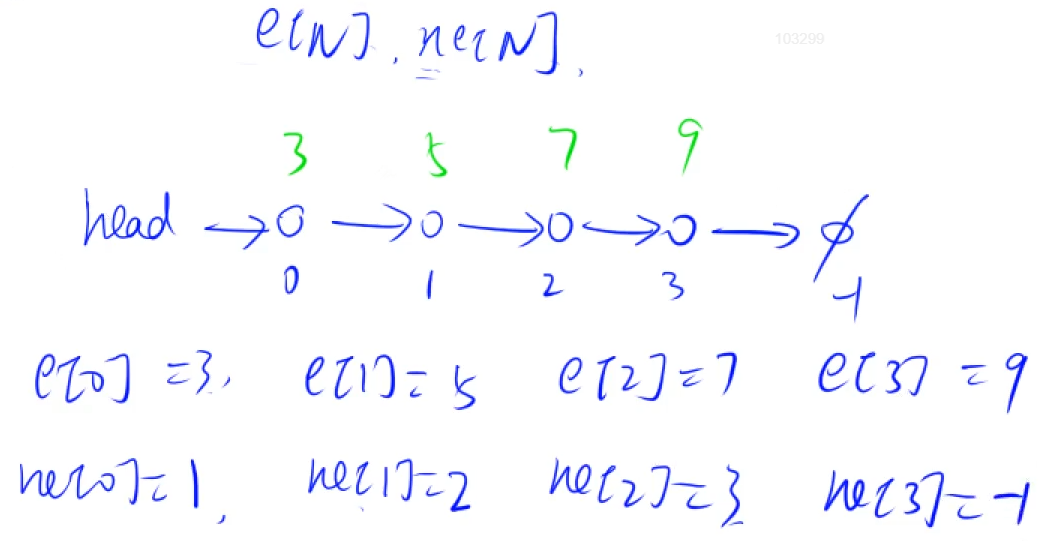 e[N], ne[N].
103299
3 5 7 9
head → O → O → O → O → ∅
0 1 2 3 -1
e[0] = 3, e[1] = 5 e[2] = 7 e[3] = 9
ne[0] = 1, ne[1] = 2 ne[2] = 3 ne[3] = -1